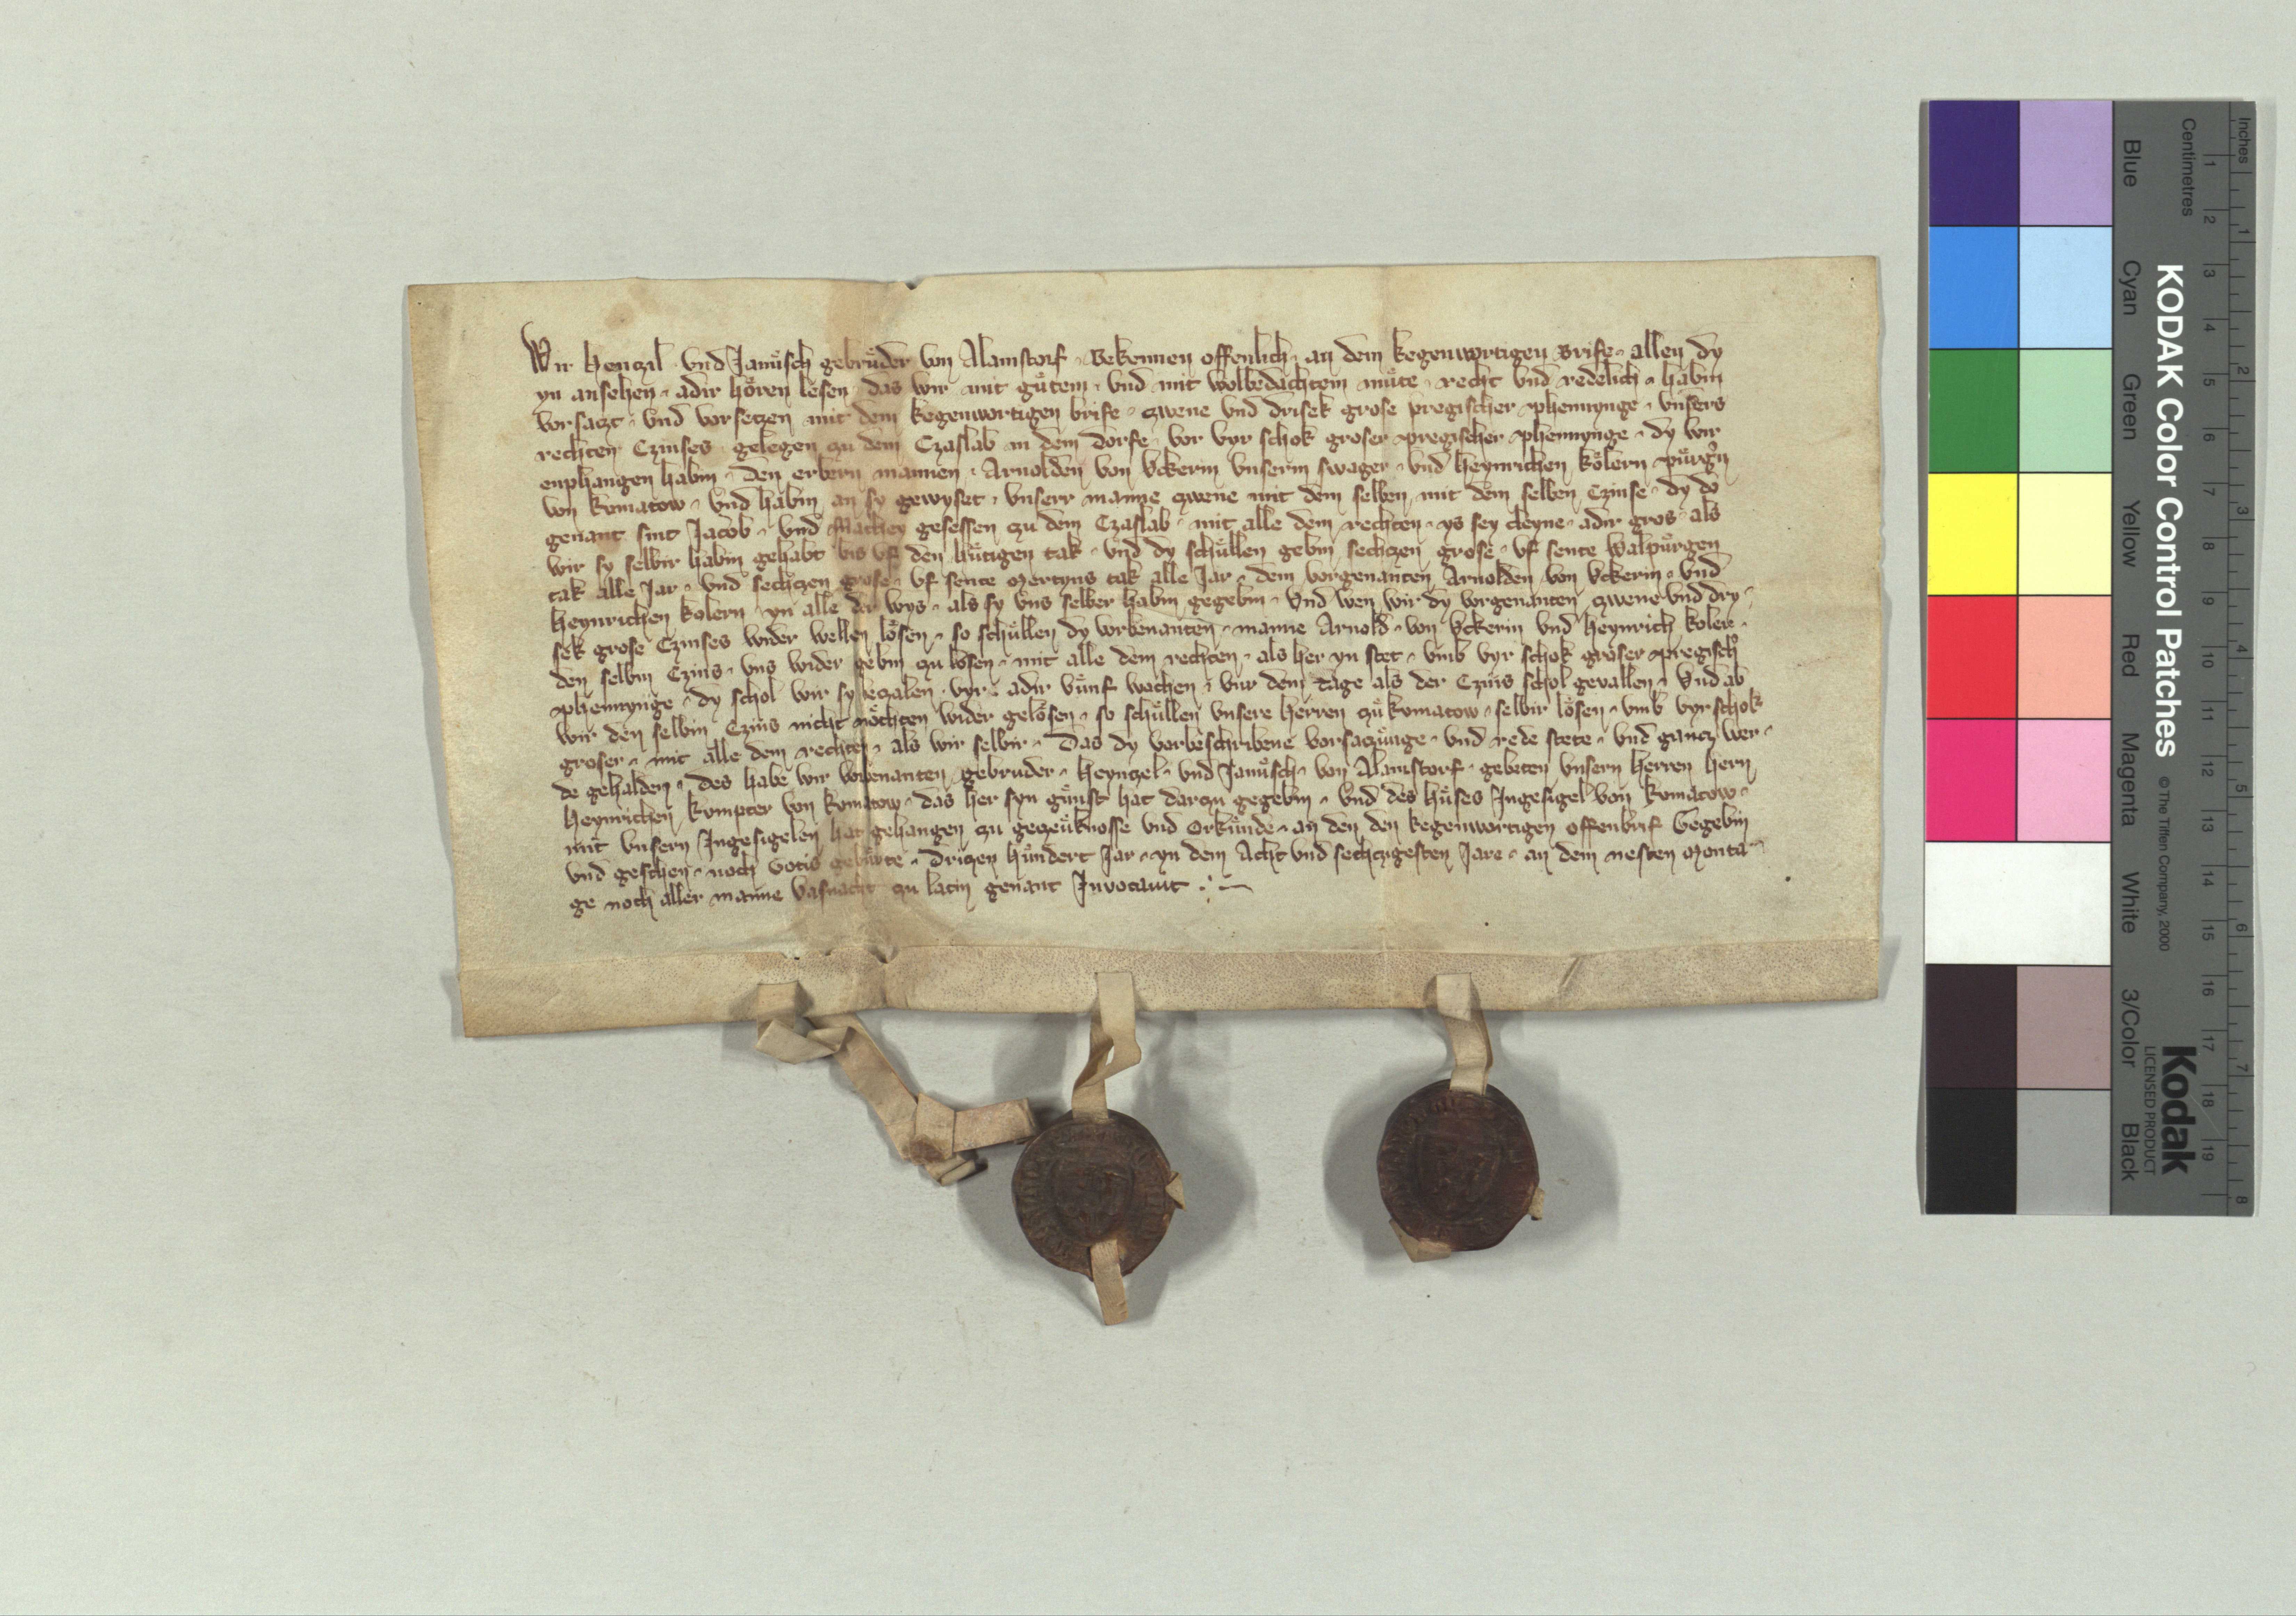 Wir Henczil vnd Janusch gebruder von Alamstorf Bekennen offenlich an dem kegenwortigen Brife allen dy
yn ansehen adir hören lesen das wir mit gutem vnd mit wolbedachtem mute recht vnd redelich habin
vorsaczt vnd vorseczen mit dem kegenwortigen brife zwene vnd drisek grose pregischer phennynge vnsers
rechten Czinses gelegen zu dem Czaslab in dem dorfe vor vyr schok groser pregischer phennynge dy wir
enphangen habin den erbern mannen Arnolden von Vckerin vnserm swager vnd Heynrichen kölern purgern
von komatow vnd habin an sy gewyset vnserr manne zwene mit dem selben mit dem selben Czinse dy do
genant sint Jacob vnd Mathey gesessen zu dem Czaslab mit alle dem rechten ys sey cleyne adir gros als
wir sy selbir habin gehabt bis vf den hutigen tak vnd dy schullen gebin sechzen grose vf sente walpurgen
tak alle Jar vnd sechzen grose vf sente Mertyns tak alle Jar dem vorgenanten Arnolden von Vckerin vnd
Heynrichen kolern yn alle der wys als sy vns selber habin gegebin Vnd wen wir dy vorgenanten zwene vnd dry
sek grose Czinses wider wellen lösen so schullen dy vorbenanten manne Arnold von Vckerin vnd Heynrich koler
den selbin Czins vns wider gebin zu lösen mit alle dem rechten als her yn stet vmb vyr schok groser pregischer
phennynge dy schol wir sy beczalen vyr adir vunf wochen vur dem tage als der Czins schol gevallen Vnd ab
wir den selbin Czins nicht möchten wider gelösen so schullen vnsere herren zu komatow selbir lösen vmb vyr schok
groser mit alle dem rechten als wir selbir Das dy vorbeschribene vorsaczunge vnd rede stete vnd gancz wer
de gehalden des habe wir vorbenanten gebruder Heynczel vnd Janusch von Alamstorf gebeten vnsern herren hern
Heynrichen kompter von komatow das her syn gunst hat darzu gegebin vnd des huses Ingesigel von komatow
mit vnsern Ingesigelen hat gehangen zu geczeuknosse vnd Orkunde an den den kegenwortigen offenbrif Gegebin
vnd geschen noch Gotis geburte drizen hundert Jar yn dem Acht vnd sechczigesten Jare an dem nesten Monta
ge noch aller manne vasnacht zu latin genant Invocavit
KODAK Color Control Patches
© The Tiffen Company, 2000
Kodak
LICENSED PRODUCT
Blue Cyan Green Yellow Red Magenta White 3/Color Black
Centimetres
1 2 3 4 5 6 7 8 9 10 11 12 13 14 15 16 17 18 19
Inches
1 2 3 4 5 6 7 8